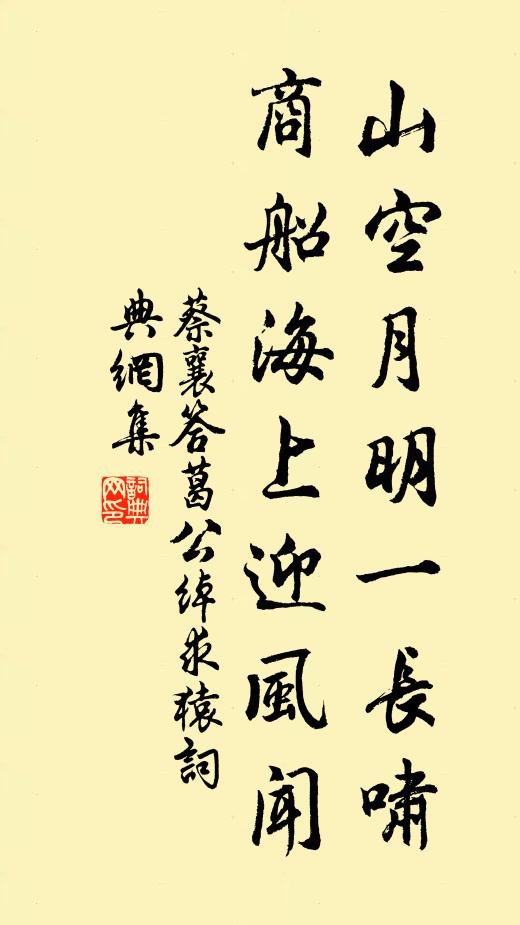 山空月明一長嘯
商船海上迎風聞
蔡襄答葛公綽求猿詞
典網集
詞典網印